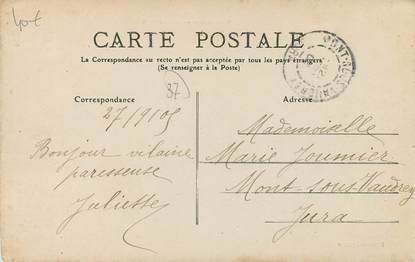 CARTE POSTALE
La Correspondance au recto n'est pas acceptée par tous les pays étrangers
(Se renseigner à la Poste)
37
Correspondance
Adresse
27/9/05
Bonjour vilaine
paresseuse
Juliette
Mademoiselle
Marie Joumier
Mont-sous-Vaudrey
Jura